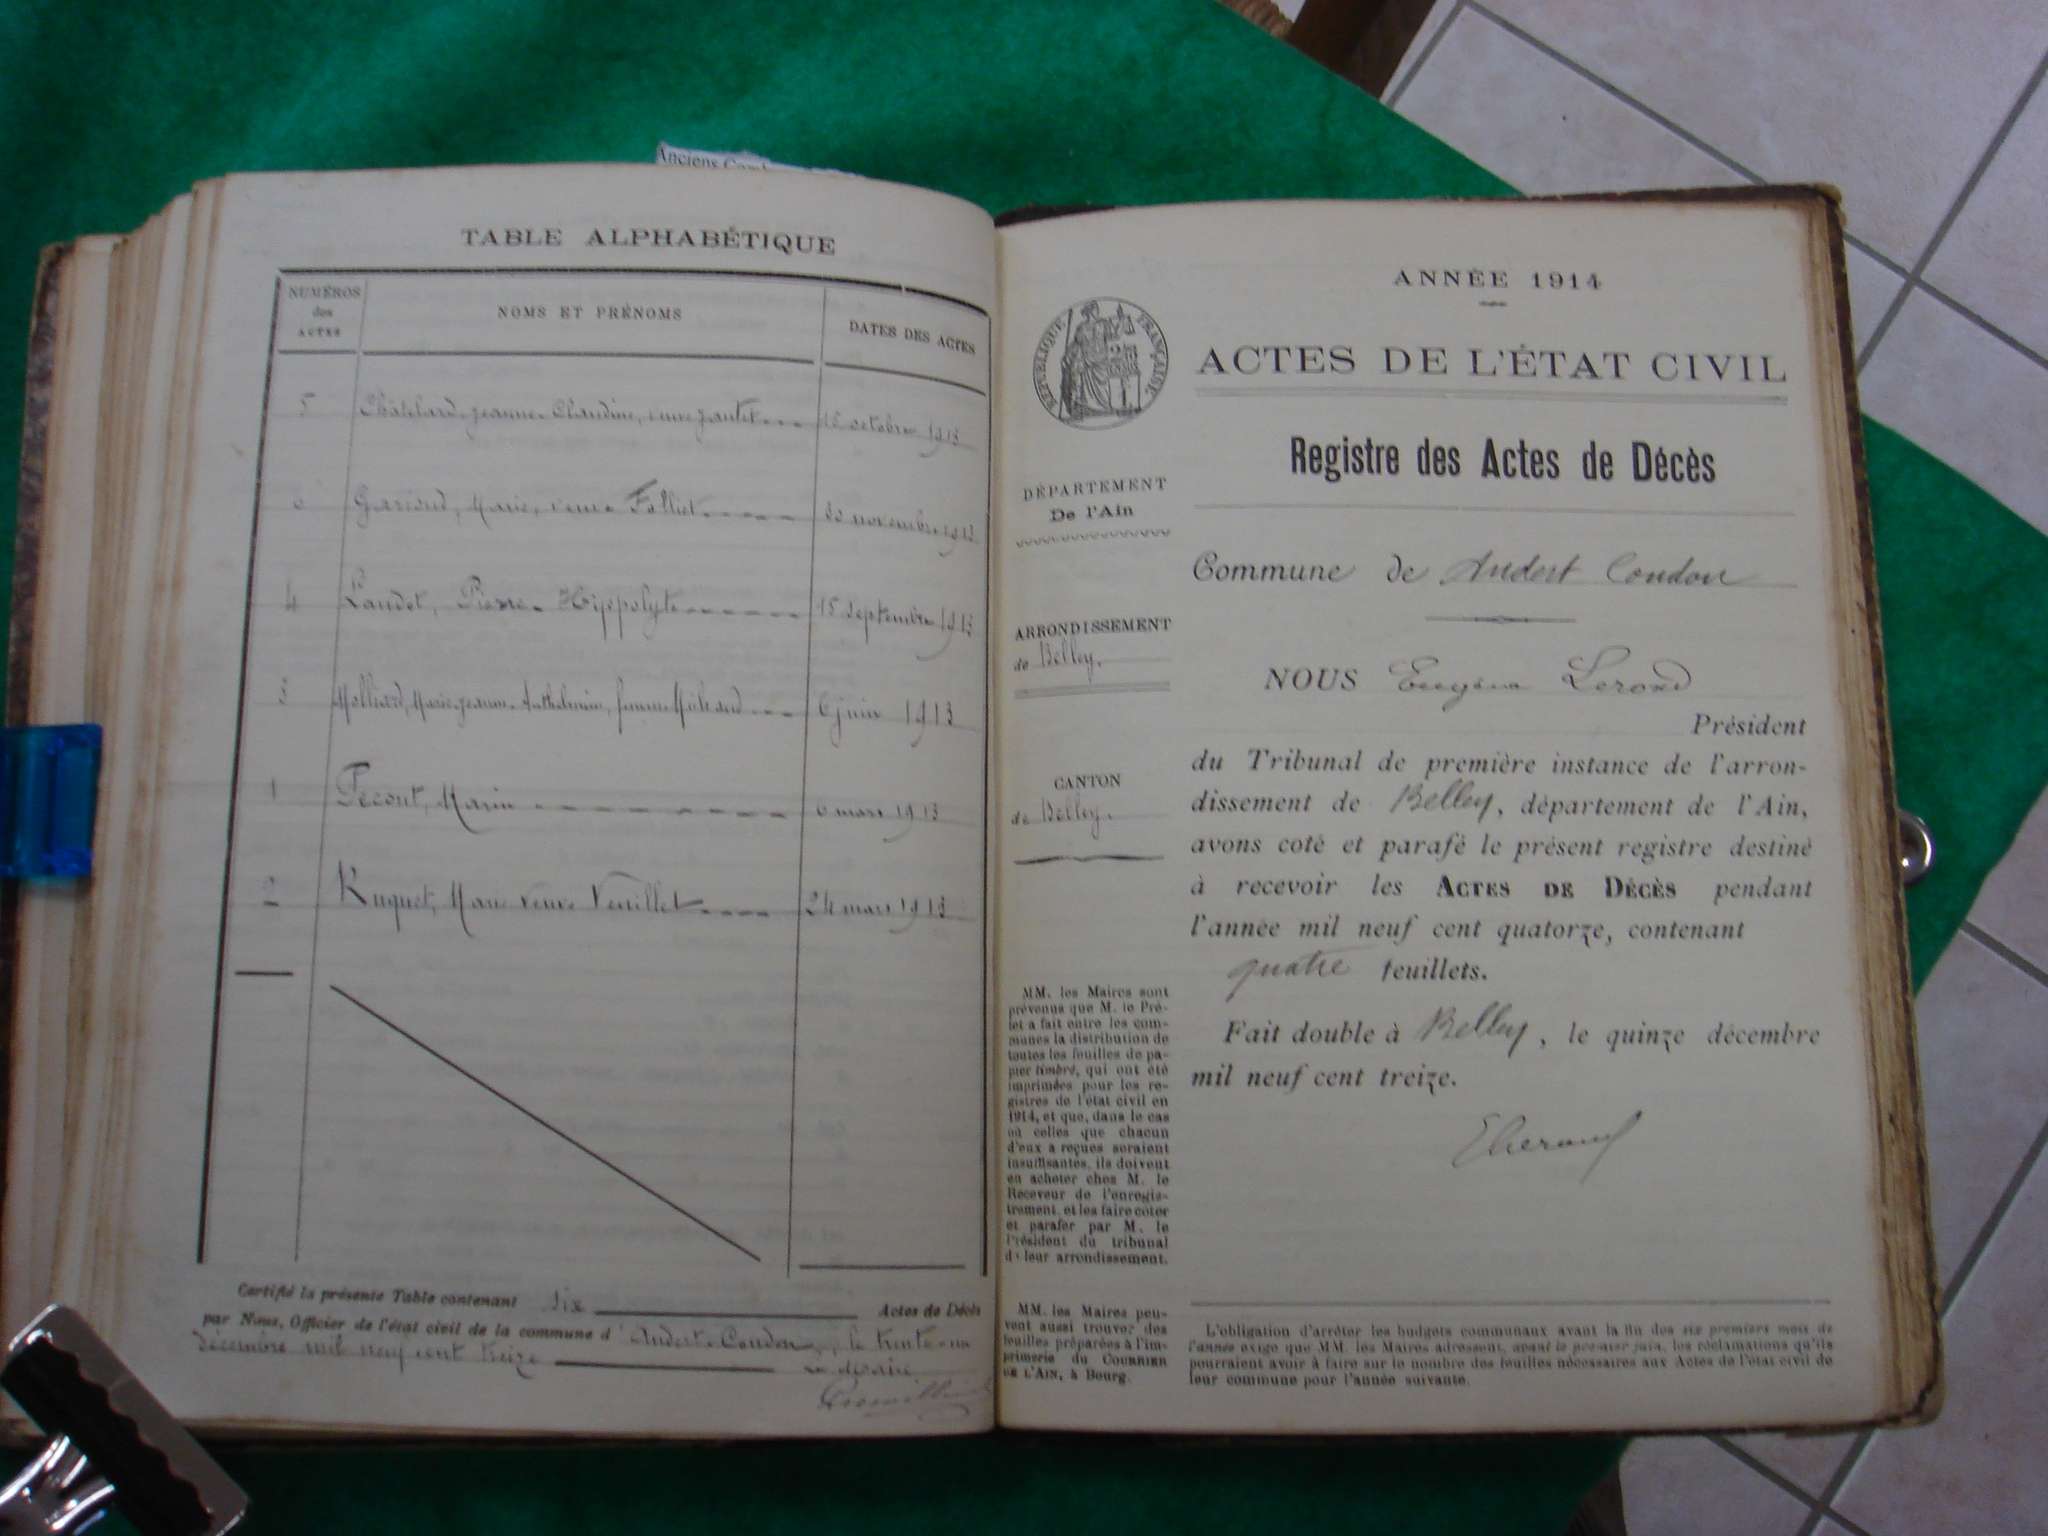 Anciens Com
TABLE ALPHABÉTIQUE
NUMÉROS
des
ACTES
NOMS ET PRÉNOMS
DATES DES ACTES
5 Châtelard, Jeanne Claudine, veuve octobre 1913
6 Garioud, Marie, veuve Folliet 30 novembre 1913
4 Landet, Pierre Hippolyte 15 septembre 1913
3 Molliard, Marie Jeanne Anthelmine, femme 6 juin 1913
1 Pécout, Marin 6 mars 1913
2 Ruguet, Marie veuve Veuillet 24 mars 1913
Certifié la présente Table contenant six Actes de Décès
par Nous, Officier de l'état civil de la commune d'Andert-Condon, le trente-un
décembre mil neuf cent treize
ANNÉE 1914
RÉPUBLIQUE FRANÇAISE
ACTES DE L'ÉTAT CIVIL
Registre des Actes de Décès
DÉPARTEMENT
De l'Ain
Commune de Andert Condon
ARRONDISSEMENT
de Belley.
CANTON
de Belley.
NOUS Eugène
Président
du Tribunal de première instance de l'arron-
dissement de Belley, département de l'Ain,
avons coté et parafé le présent registre destiné
à recevoir les ACTES DE DÉCÈS pendant
l'année mil neuf cent quatorze, contenant
quatre feuillets.
Fait double à Belley, le quinze décembre
mil neuf cent treize.
MM. les Maires sont
prévenus que M. le Pré-
fet a fait entre les com-
munes la distribution de
toutes les feuilles de pa-
pier timbré, qui ont été
imprimées pour les re-
gistres de l'état civil en
1914, et que, dans le cas
où celles que chacun
d'eux a reçues seraient
insuffisantes, ils doivent
en acheter chez M. le
Receveur de l'enregis-
trement, et les faire coter
et parafer par M. le
Président du tribunal
de leur arrondissement.
MM. les Maires peu-
vent aussi trouver des
feuilles préparées à l'im-
primerie du COURRIER
DE L'AIN, à Bourg.
L'obligation d'arrêter les budgets communaux avant la fin des six premiers mois de
l'année exige que MM. les Maires adressent, avant le premier juin, les réclamations qu'ils
pourraient avoir à faire sur le nombre des feuilles nécessaires aux Actes de l'état civil de
leur commune pour l'année suivante.